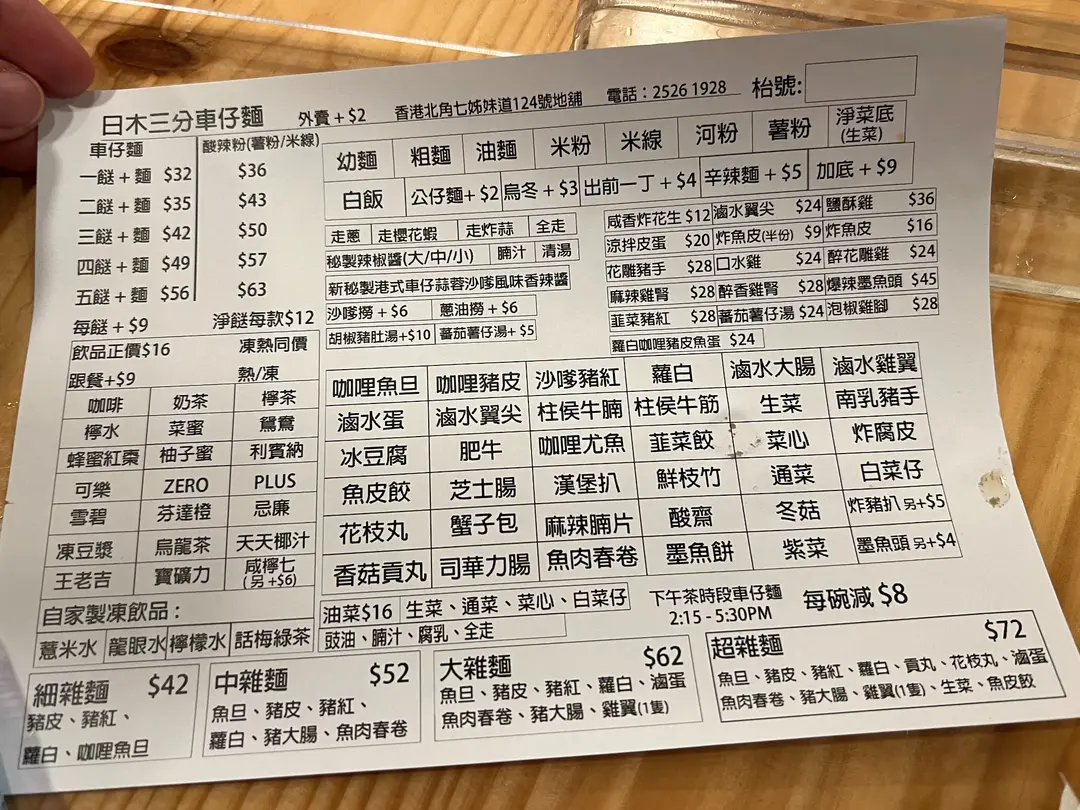 日木三分車仔麵 外賣 + $2 香港北角七姊妹道124號地舖 電話：2526 1928 枱號:
車仔麵 酸辣粉(薯粉/米線)
一餸 + 麵 $32 $36
二餸 + 麵 $35 $43
三餸 + 麵 $42 $50
四餸 + 麵 $49 $57
五餸 + 麵 $56 $63
每餸 + $9 淨餸每款$12
幼麵 粗麵 油麵 米粉 米線 河粉 薯粉 淨菜底(生菜)
白飯 公仔麵+ $2 烏冬 + $3 出前一丁 + $4 辛辣麵 + $5 加底 + $9
走蔥 走櫻花蝦 走炸蒜 全走
秘製辣椒醬(大/中/小) 腩汁 清湯
新秘製港式車仔蒜蓉沙嗲風味香辣醬
沙嗲撈 + $6 蔥油撈 + $6
胡椒豬肚湯+$10 蕃茄薯仔湯+ $5
咸香炸花生 $12 滷水翼尖 $24 鹽酥雞 $36
涼拌皮蛋 $20 炸魚皮(半份) $9 炸魚皮 $16
花雕豬手 $28 口水雞 $24 醉花雕雞 $24
麻辣雞腎 $28 醉香雞腎 $28 爆辣墨魚頭 $45
韮菜豬紅 $28 蕃茄薯仔湯 $24 泡椒雞腳 $28
蘿白咖哩豬皮魚蛋 $24
飲品正價$16 凍熱同價
跟餐+$9 熱/凍
咖啡 奶茶 檸茶
檸水 菜蜜 鴛鴦
蜂蜜紅棗 柚子蜜 利賓納
可樂 ZERO PLUS
雪碧 芬達橙 忌廉
凍豆漿 烏龍茶 天天椰汁
王老吉 寶礦力 咸檸七(另 +$6)
自家製凍飲品：
薏米水 龍眼水 檸檬水 話梅綠茶
咖哩魚旦 咖哩豬皮 沙嗲豬紅 蘿白 滷水大腸 滷水雞翼
滷水蛋 滷水翼尖 柱侯牛腩 柱侯牛筋 生菜 南乳豬手
冰豆腐 肥牛 咖哩尤魚 韮菜餃 菜心 炸腐皮
魚皮餃 芝士腸 漢堡扒 鮮枝竹 通菜 白菜仔
花枝丸 蟹子包 麻辣腩片 酸齋 冬菇 炸豬扒 另+$5
香菇貢丸 司華力腸 魚肉春卷 墨魚餅 紫菜 墨魚頭 另+$4
油菜$16 生菜、通菜、菜心、白菜仔
豉油、腩汁、腐乳、全走
下午茶時段車仔麵 每碗減 $8
2:15 - 5:30PM
細雜麵 $42
豬皮、豬紅、
蘿白、咖哩魚旦
中雜麵 $52
魚旦、豬皮、豬紅、
蘿白、豬大腸、魚肉春卷
大雜麵 $62
魚旦、豬皮、豬紅、蘿白、滷蛋
魚肉春卷、豬大腸、雞翼(1隻)
超雜麵 $72
魚旦、豬皮、豬紅、蘿白、貢丸、花枝丸、滷蛋
魚肉春卷、豬大腸、雞翼(1隻)、生菜、魚皮餃